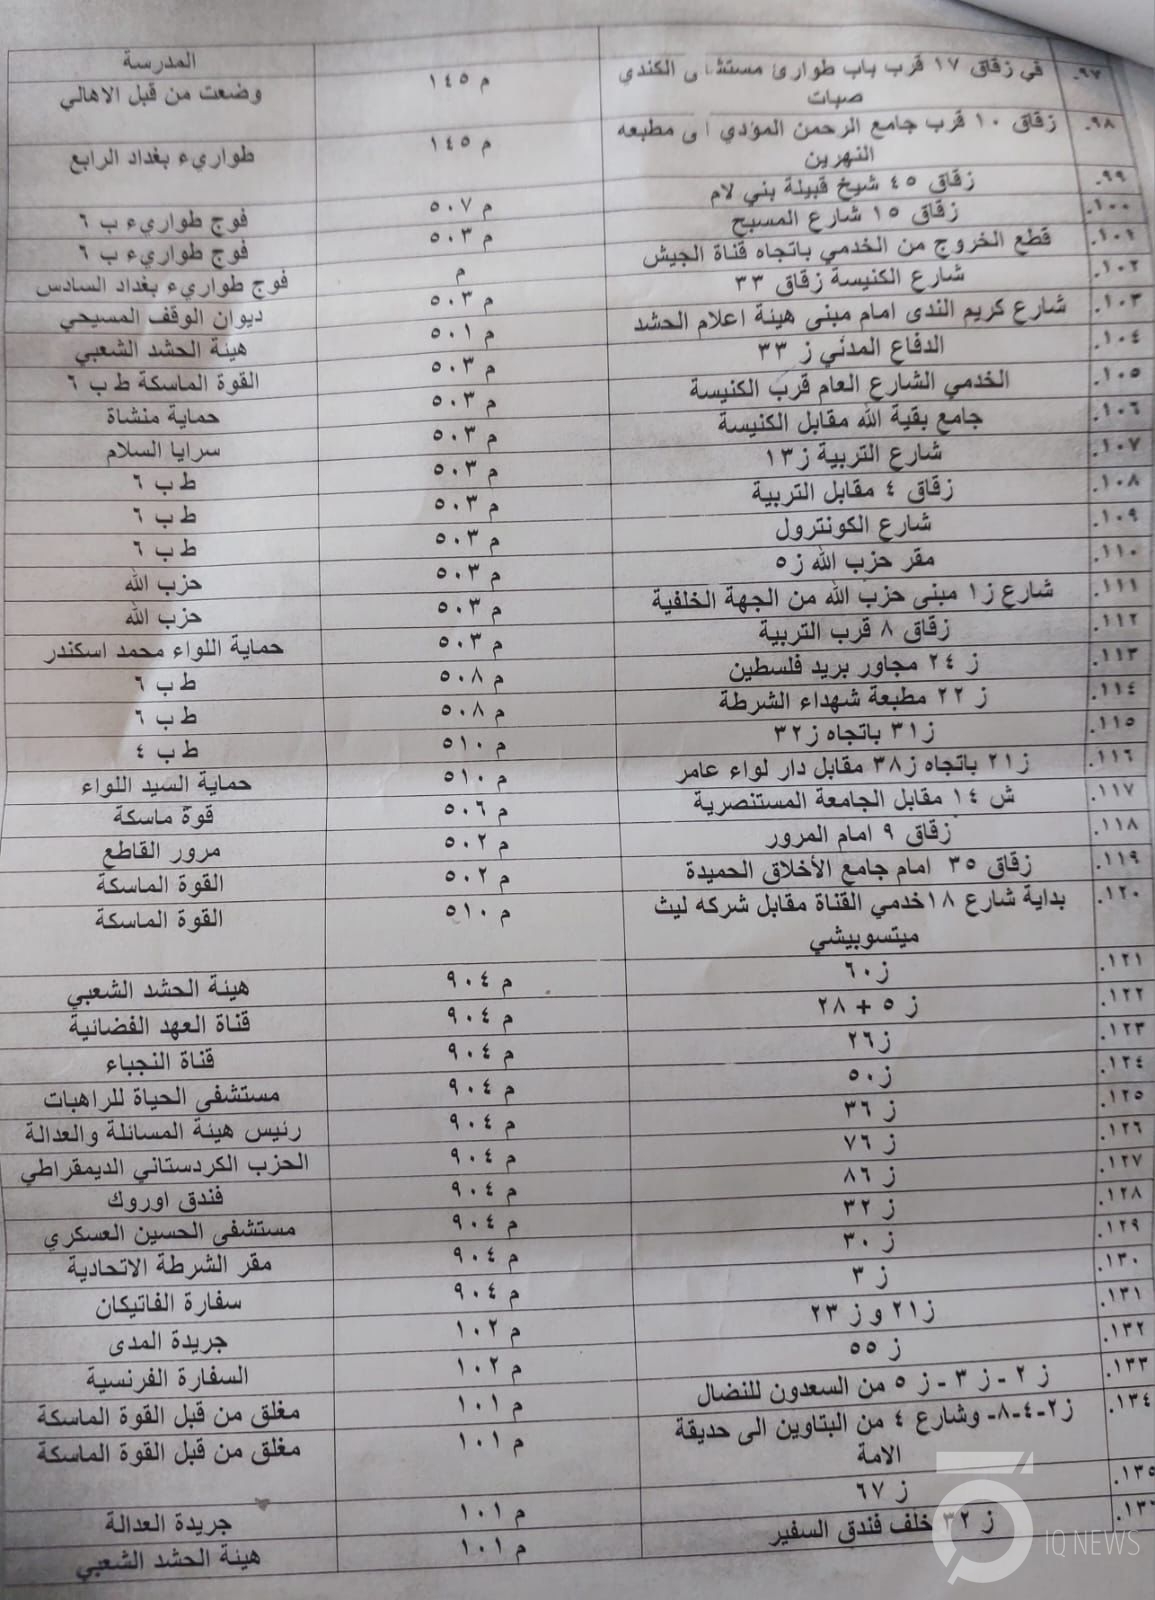 المدرسة
٩٧. في زقاق ١٧ قرب باب طوارئ مستشفى الكندي م ١٤٥ وضعت من قبل الاهالي
صبات
٩٨. زقاق ١٠ قرب جامع الرحمن المؤدي الى مطبعه م ١٤٥ طواريء بغداد الرابع
النهرين
٩٩. زقاق ٤٥ شيخ قبيلة بني لام م ٥٠٧ فوج طواريء ب ٦
١٠٠. زقاق ١٥ شارع المسبح م ٥٠٣ فوج طواريء ب ٦
١٠١. قطع الخروج من الخدمي باتجاه قناة الجيش م فوج طواريء بغداد السادس
١٠٢. شارع الكنيسة زقاق ٣٣ م ٥٠٣ ديوان الوقف المسيحي
١٠٣. شارع كريم الندى امام مبنى هيئة اعلام الحشد م ٥٠١ هيئة الحشد الشعبي
١٠٤. الدفاع المدني ز ٣٣ م ٥٠٣ القوة الماسكة ط ب ٦
١٠٥. الخدمي الشارع العام قرب الكنيسة م ٥٠٣ حماية منشاة
١٠٦. جامع بقية الله مقابل الكنيسة م ٥٠٣ سرايا السلام
١٠٧. شارع التربية ز ١٣ م ٥٠٣ ط ب ٦
١٠٨. زقاق ٤ مقابل التربية م ٥٠٣ ط ب ٦
١٠٩. شارع الكونترول م ٥٠٣ ط ب ٦
١١٠. مقر حزب الله ز٥ م ٥٠٣ حزب الله
١١١. شارع ز١ مبنى حزب الله من الجهة الخلفية م ٥٠٣ حزب الله
١١٢. زقاق ٨ قرب التربية م ٥٠٣ حماية اللواء محمد اسكندر
١١٣. ز ٢٤ مجاور بريد فلسطين م ٥٠٨ ط ب ٦
١١٤. ز ٢٢ مطبعة شهداء الشرطة م ٥٠٨ ط ب ٦
١١٥. ز٣١ باتجاه ز٣٢ م ٥١٠ ط ب ٤
١١٦. ز٢١ باتجاه ز٣٨ مقابل دار لواء عامر م ٥١٠ حماية السيد اللواء
١١٧. ش ١٤ مقابل الجامعة المستنصرية م ٥٠٦ قوة ماسكة
١١٨. زقاق ٩ امام المرور م ٥٠٢ مرور القاطع
١١٩. زقاق ٣٥ امام جامع الأخلاق الحميدة م ٥٠٢ القوة الماسكة
١٢٠. بداية شارع ١٨خدمي القناة مقابل شركه ليث م ٥١٠ القوة الماسكة
ميتسوبيشي
١٢١. ز٦٠ م ٩٠٤ هيئة الحشد الشعبي
١٢٢. ز ٥ + ٢٨ م ٩٠٤ قناة العهد الفضائية
١٢٣. ز٢٦ م ٩٠٤ قناة النجباء
١٢٤. ز٥٠ م ٩٠٤ مستشفى الحياة للراهبات
١٢٥. ز ٣٦ م ٩٠٤ رئيس هيئة المسائلة والعدالة
١٢٦. ز ٧٦ م ٩٠٤ الحزب الكردستاني الديمقراطي
١٢٧. ز ٨٦ م ٩٠٤ فندق اوروك
١٢٨. ز ٣٢ م ٩٠٤ مستشفى الحسين العسكري
١٢٩. ز ٣٠ م ٩٠٤ مقر الشرطة الاتحادية
١٣٠. ز ٣ م ٩٠٤ سفارة الفاتيكان
١٣١. ز٢١ و ز ٢٣ م ١٠٢ جريدة المدى
١٣٢. ز ٥٥ م ١٠٢ السفارة الفرنسية
١٣٣. ز ٢ - ز ٣ - ز ٥ من السعدون للنضال م ١٠١ مغلق من قبل القوة الماسكة
١٣٤. ز٢-٤-٨- وشارع ٤ من البتاوين الى حديقة م ١٠١ مغلق من قبل القوة الماسكة
الامة
١٣٥. ز ٦٧ م ١٠١ جريدة العدالة
ز ٣٢ خلف فندق السفير م ١٠١ هيئة الحشد الشعبي
IQ NEWS